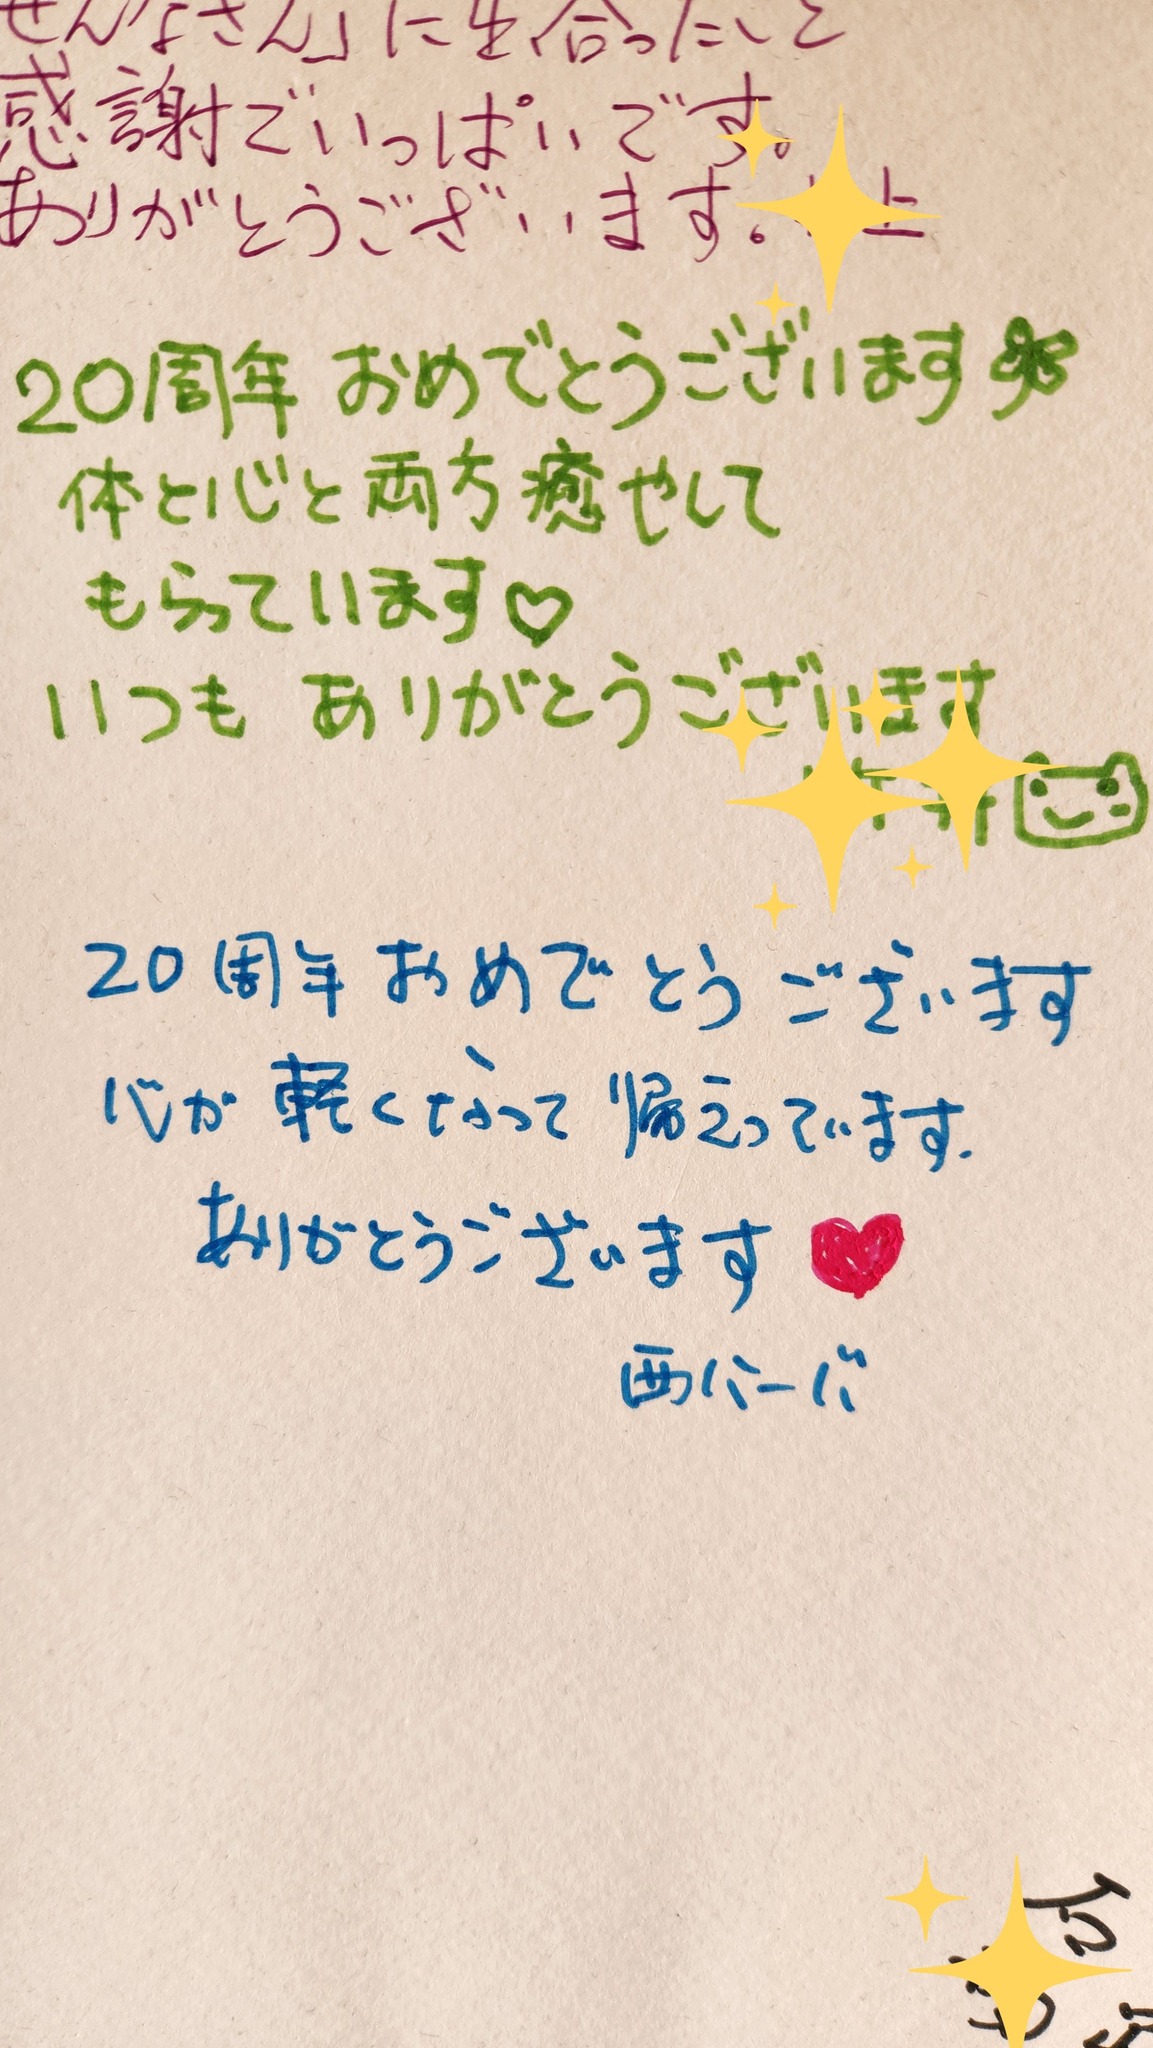 せんなさん」に出合ったこと
感謝でいっぱいです。
ありがとうございます。 上
20周年 おめでとうございます
体と心と両方癒やして
もらっています♡
いつも ありがとうございます
20周年 おめでとうございます
心が 軽くなって 帰えっています.
ありがとうございます
西バーバ